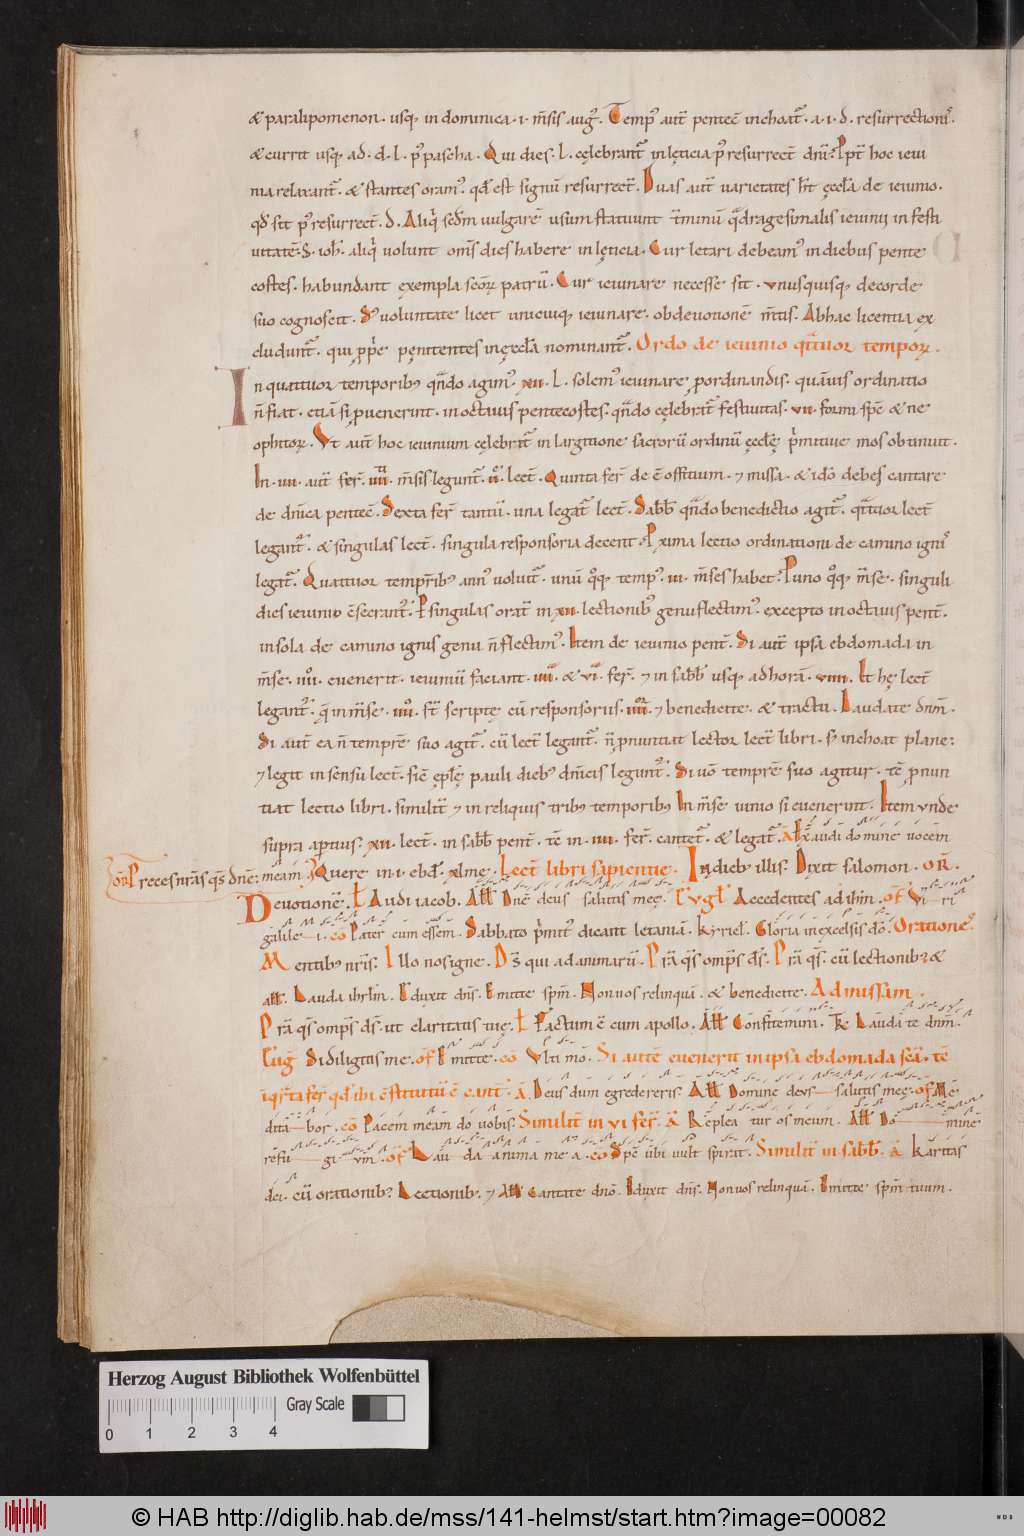 & paralipomenon. usq; in dominica .i. m̄sis aug̉. Temp̉ aut̄ pentec̄ inchoat̄. a .i. d. resurrectionỉ.
& currit usq; ad .d. L. p̉ pascha. Qui dies .L. cęlebrant̄ in lęticia p̉ resurrect̄ dn̄i. hoc ieiu
nia relaxant̄. & stantes oram̉. qđ est signū resurrect̄. Duas aut̄ uarietates ęcclā de ieiunio.
qđ sit p̉ resurrect̄. d. Aliq̉ scđm uulgarē usum statuunt t̄minū q̄dragesimalis ieiunij in festi
uitatē S. ioh̄. aliq̉ uolunt om̄s dies habere in lęticia. Cur letari debeam̉ in diebus pente
costes. habundant exempla scōꝝ patrū. Cur ieiunare necesse sit. unusquisq; de corde
suo cognoscit. uoluntate licet unicuiq; ieiunare. ob deuotionē m̄tis. Ab hac licentia ex
cludunt̄. qui pp̄e penitentes in ęcclā nominant̄. Ordo de ieiunio q̄tuor temporꝝ.
In quattuor temporib; q̄ndo agim̉ .xii. L. solem̉ ieiunare p ordinandis. quāuis ordinatio
n̄ fiat. etiā si puenerint. in octauis pentecostes. q̄ndo cęlebrat̄ festiuitas .vii. formi spē & ne
ophitoꝝ. Vt aut̄ hoc ieiunium cęlebrat̄ in largitione sacrorū ordinū ęcclę p̄mitiue mos obtinuit.
In .iiii. aut̄ fer̄. m̄sis legunt̄ .ii. lect̄. Quinta fer̄ de ē offitium. ⁊ missa. & ido debes cantare
de dn̄ica pentec̄. Sexta fer̄ tantū. una legat̄ lect̄. Sabb̄ q̄ndo benedictio agit̄. q̄tuor lect̄
legant̄. & singulas lect̄. singula responsoria decent. Pxima lectio ordinationi de camino ignỉ
legat̄. Quattuor temp̄rib; ann̉ uoluit̄. unū q̉q; temp̉ .iii. m̄ses habet. P uno q̉q; m̄se. singuli
dies ieiunio c̄secrant̄. P singulas orat̄ in .xii. lectionib; genu flectim̉. excepto in octauis pent̄.
in sola de camino ignis genu n̄ flectim̉. Item de ieiunio pent̄. Si aut̄ ipsa ebdomada in
m̄se .iiii. euenerit. ieiuniū faciant .iiii. & vi. fer̄. ⁊ in sabb̄ usq; ad horā .viiii. Et hę lect̄
legant̄. q̄ in m̄se .iiii. st̄ scriptę cū responsoriis .iiii. ⁊ benedicite. & tractu. Laudate dn̄m.
Si aut̄ ea n̄ temp̄re suo agit̄. cū lect̄ legant̄. n̄ p̄nuntiat lector lect̄ libri. s; inchoat plane.
⁊ legit in sensu lect̄. sic̄ ęplę pauli dieb; dn̄icis legunt̄. Si uo temp̄re suo agitur. tē p̄nun
tiat lectio libri. similit̄ ⁊ in reliquis trib; temporib; In m̄se iunio si euenerint. Item unde
supra aptius .xii. lect̄. in sabb̄ pent̄. tē in .iiii. fer̄. cantet̄. & legat̄. ā Exaudi domine uocem
or̄ Preces nr̄as q̄s dn̄e. meam. Quere in .i. ebd̄. xlme. Lect̄ libri sapientie. In dieb; illis. Dixit salomon. OR̄.
Deuotionē. L Audi iacob. Aꝉꝉ Dn̄e deus salutis meę. Eugl̄ Accedentes ad ih̄m. of̄ Viri
galilei. co Pater cum essem. Sabbato p̄mit̉ dicant letaniā. Kyriel̄. Gloria in excelsis dō. Orationẻ.
Mentib; nr̄is. Illo nos igne. Ds̄ qui ad animarū. Pr̄a q̄s omp̄s ds̄. Pr̄a q̄s. cū lectionib; &
aꝉꝉ. Lauda ihrl̄m. Eduxit dn̄s. Emitte spm̄. Non uos relinquā. & benedicite. Ad missam.
Pr̄a q̄s omp̄s ds̄. ut claritatis tuę. L Factum ē cum apollo. Aꝉꝉ Confitemini. Tc̄ Laudate dn̄m.
Euḡ Si diligitis me. of̄ Emitte. co Vltimo. Si autē euenerit in ipsa ebdomada scā. tē
in q̄rta fer̄ qđ ibi c̄stitutū ē cant̄. ā. Deus dum egredereris. Aꝉꝉ Domine deus salutis meę. of̄ Me
ditabor. co Pacem meam do uobis. Similit̄ in vi fer̄. ā Repleatur os meum. Aꝉꝉ Domine
refugium. of̄ Lauda anima mea. co Spc̄ ubi uult spirat. Similit̄ in sabb̄. ā Karitas
dei. cū orationib; Lectionib; ⁊ Aꝉꝉ Cantate dn̄o. Eduxit dn̄s. Non uos relinquā. Emitte spm̄ tuum.
Herzog August Bibliothek Wolfenbüttel
Gray Scale
0 1 2 3 4
© HAB http://diglib.hab.de/mss/141-helmst/start.htm?image=00082